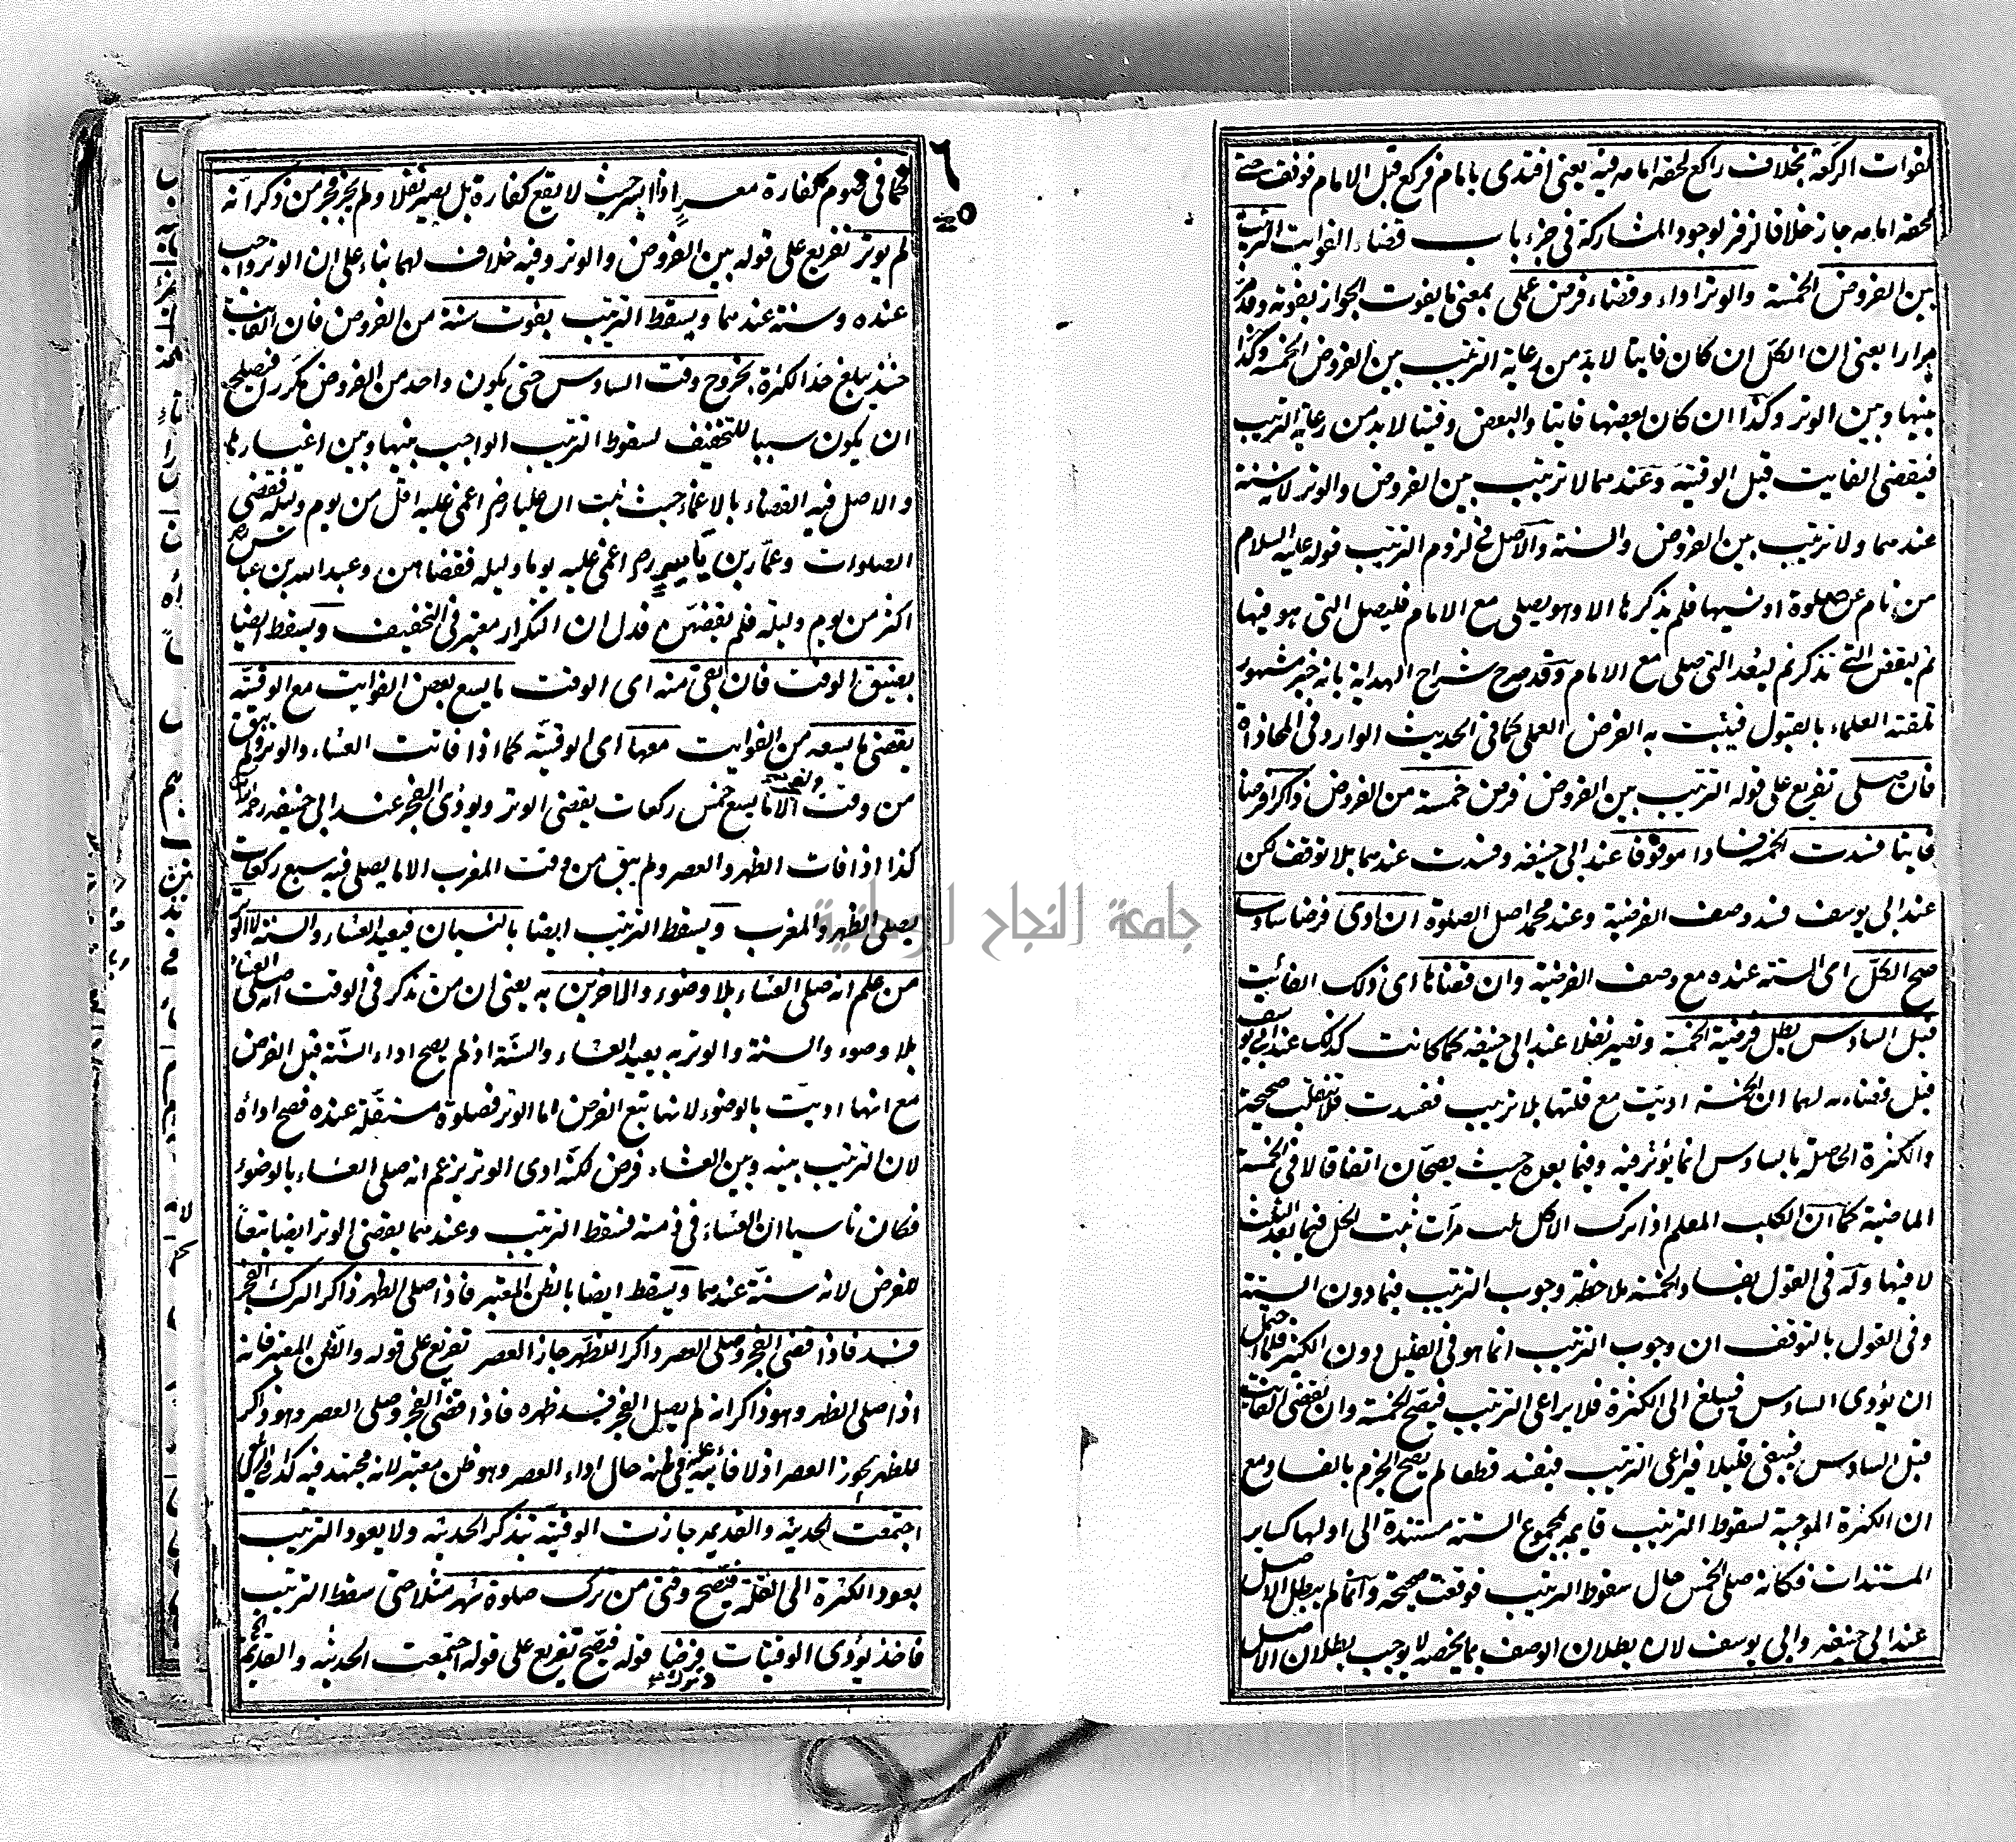 لفوات الركعة بخلاف راكع لحقه امامه فيه يعنى اقتدى بامام فركع قبل الامام فوقف حتى
لحقه امامه جاز خلافا لزفر لوجود المشاركة فى جزء باب قضاء الفوايت الترتيب
بين الفروض الخمسة والوتر اداء وقضاء فرض عملى بمعنى ما يفوت الجواز بفوته وقد مر
مرارا يعنى ان الكل ان كان فايتا لا بد من رعاية الترتيب بين الفروض الخمسة وكذا
بينها وبين الوتر وكذا ان كان بعضها فايتا والبعض وقتيا لا بد من رعاية الترتيب
فيقضى الفايت قبل الوقتية وعندهما لا ترتيب بين الفروض والوتر لانه سنة
عندهما ولا ترتيب بين الفروض والسنة والاصل فى لزوم الترتيب قوله عليه السلام
من نام عن صلوة او نسيها فلم يذكرها الا وهو يصلى مع الامام فليصل التى هو فيها
ثم ليقض التى تذكر ثم ليعد التى صلى مع الامام وقد صرح شراح الهداية بانه خبر مشهور
تلقته العلماء بالقبول فيثبت به الفرض العملى كما فى الحديث الوارد فى المحاذاة
فان صلى تفريع على قوله الترتيب بين الفروض فرض خمسة من الفروض ذاكرا فرضا
فايتا فسدت الخمسة فسادا موقوفا عند ابى حنيفه وفسدت عندهما بلا توقف لكن
عند ابى يوسف فسد وصف الفرضية وعند محمد اصل الصلوة ان ادى فرضا سادسا
صح الكل اى الستة عنده مع وصف الفرضية وان قضاها اى ذلك الفائت
قبل السادس بطل فرضية الخمسة وتصير نفلا عند ابى حنيفه كما كانت كذلك عند ابى يوسف
قبل قضاءه لهما ان الخمسة اديت مع قلتها بلا ترتيب ففسدت فلا تنقلب صحيحة
والكثرة الحاصلة بالسادس انما يؤثر فيه وفيما بعده حيث يصحان اتفاقا لا فى الخمسة
الماضية كما ان الكلب المعلم اذا ترك الاكل ثلث مرات ثبت الحل فيما بعد الثلث
لا فيها وله فى القول بفساد الخمسة ملاحظة وجوب الترتيب فيما دون الستة
وفى القول بالتوقف ان وجوب الترتيب انما هو فى القليل دون الكثير فلما احتمل
ان يؤدى السادس فيبلغ الى الكثرة فلا يراعى الترتيب فيصح الخمسة وان يقضى الفائت
قبل السادس فيبقى قليلا فيراعى الترتيب فيفسد قطعا لم يصح الجزم بالفساد مع
ان الكثرة الموجبة لسقوط الترتيب قايمة بمجموع الستة مستندة الى اولها كساير
المستندات فكانه صلى الخمس حال سقوط الترتيب فوقعت صحيحة وانما لم يبطل الاصل
عند ابى حنيفه وابى يوسف لان بطلان الوصف بما يخصه لا يوجب بطلان الاصل
٦
كما فى صوم كفارة معسر اذا ايسر حيث لا يقع كفارة بل يصير نفلا ولم يجز فجر من ذكر انه
لم يوتر تفريع على قوله بين الفروض والوتر وفيه خلاف لهما بناء على ان الوتر واجب
عنده وسنة عندهما ويسقط الترتيب بفوت ستة من الفروض فان الفائت
حينئذ يبلغ حد الكثرة بخروج وقت السادس حتى يكون واحد من الفروض مكررا فيصلح
ان يكون سببا للتخفيف لسقوط الترتيب الواجب بينها وبين اغيارها
والاصل فيه القضاء بالاغماء حيث ثبت ان عليا رضى اغمى عليه اقل من يوم وليلة فقضى
الصلوات وعمار بن ياسر رضى اغمى عليه يوما وليلة فقضاهن وعبد الله بن عباس
اكثر من يوم وليلة فلم يقضهن فدل ان التكرار معتبر فى التخفيف ويسقط ايضا
بضيق الوقت فان بقى منه اى الوقت ما يسع بعض الفوايت مع الوقتية
يقضى ما يسعه من الفوايت معها اى الوقتية كما اذا فاتت العشاء والوتر ولم يبق
من وقت الفجر الا ما يسع خمس ركعات يقضى الوتر ويؤدى الفجر عند ابى حنيفه رحمه الله
كذا اذا فات الظهر والعصر ولم يبق من وقت المغرب الا ما يصلى فيه سبع ركعات
يصلى الظهر والمغرب ويسقط الترتيب ايضا بالنسيان فيعيد العشاء والسنة لا الوتر
من علم انه صلى العشاء بلا وضوء والاخرين به يعنى ان من تذكر فى الوقت انه صلى العشاء
بلا وضوء والسنة والوتر به يعيد العشاء والسنة اذ لم يصح اداء السنة قبل الفرض
مع انها اديت بالوضوء لانها تبع الفرض اما الوتر فصلوة مستقلة عنده فصح اداؤه
لان الترتيب بينه وبين العشاء فرض لكنه ادى الوتر بزعم انه صلى العشاء بالوضوء
فكان ناسيا ان العشاء فى ذمته فسقط الترتيب وعندهما يقضى الوتر ايضا تبعا
للفرض لانه سنة عندهما ويسقط ايضا بالظن المعتبر فاذا صلى الظهر ذاكرا لترك الفجر
فسد فاذا قضى الفجر وصلى العصر ذاكرا للظهر جاز العصر تفريع على قوله والظن المعتبر فانه
اذا صلى الظهر وهو ذاكر انه لم يصل الفجر فسد ظهره فاذا قضى الفجر وصلى العصر وهو ذاكر
للظهر يجوز العصر اذ لا فائتة عليه فى ظنه حال اداء العصر وهو ظن معتبر لانه مجتهد فيه كذا فى
اجتمعت الحديثة والقديمة جازت الوقتية بتذكر الحديثة ولا يعود الترتيب
بعود الكثرة الى القلة فيصح وقتى من ترك صلوة شهر مثلا حتى سقط الترتيب
فاخذ يؤدى الوقتيات فرضا قوله فيصح تفريع على قوله اجتمعت الحديثة والقديمة
جامعة النجاح الوطنية